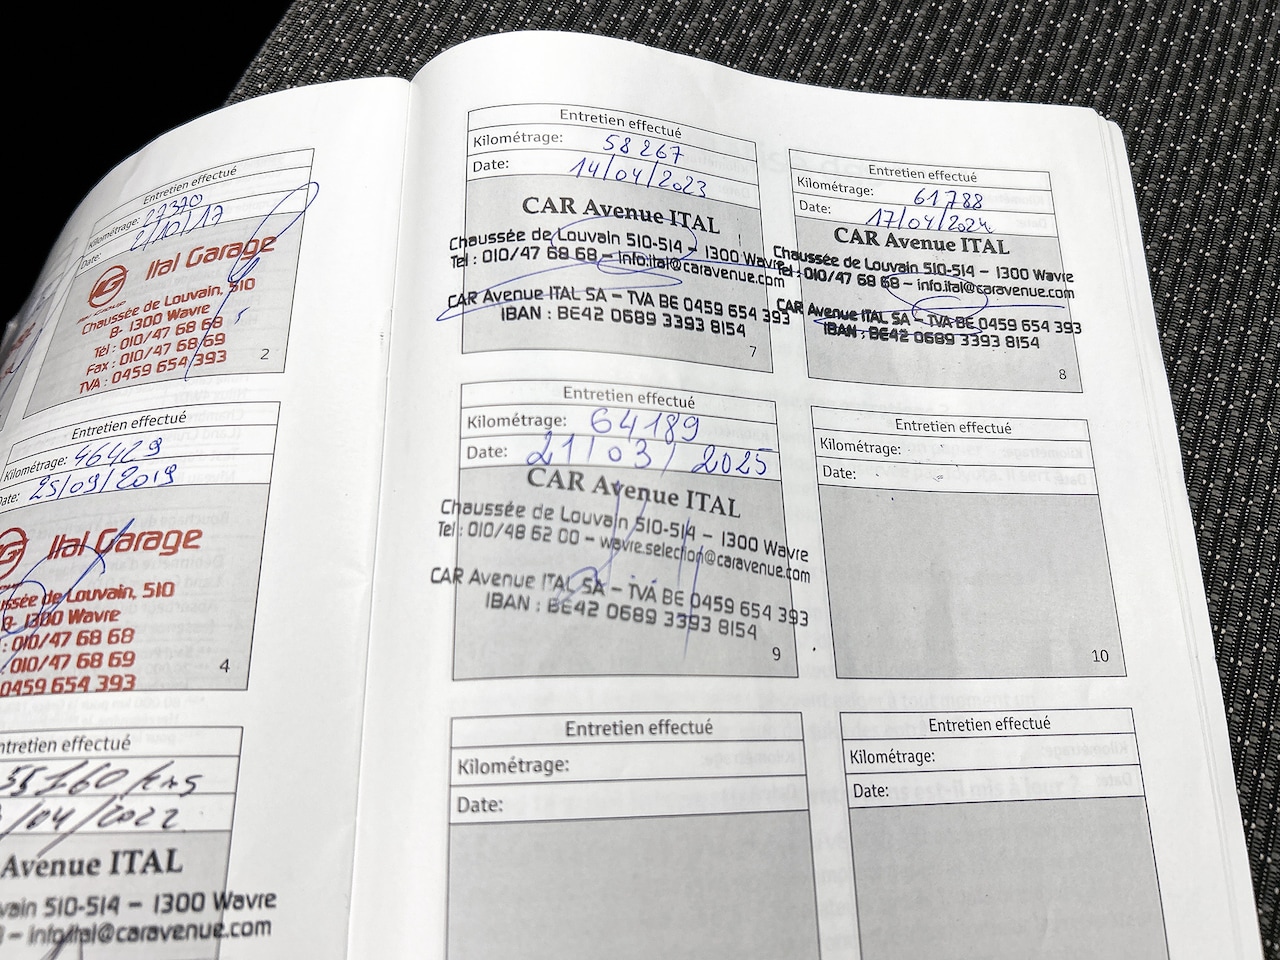 Entretien effectué
Kilométrage: 22370
Date: 2/10/17
Ital Garage
Chaussée de Louvain, 510
B- 1300 Wavre
Tél : 010/47 68 68
Fax : 010/47 68 69
TVA : 0459 654 393
2
Entretien effectué
Kilométrage: 46429
Date: 25/09/2019
Ital Garage
ussée de Louvain, 510
B- 1300 Wavre
: 010/47 68 68
010/47 68 69
0459 654 393
4
ntretien effectué
55160 kms
/04/2022
Avenue ITAL
vain 510-514 – 1300 Wavre
– info.ital@caravenue.com
Entretien effectué
Kilométrage: 58267
Date: 14/04/2023
CAR Avenue ITAL
Chaussée de Louvain 510-514 – 1300 Wavre
Tel : 010/47 68 68 – info.ital@caravenue.com
CAR Avenue ITAL SA – TVA BE 0459 654 393
IBAN : BE42 0689 3393 8154
7
Entretien effectué
Kilométrage: 61788
Date: 17/04/2024
CAR Avenue ITAL
Chaussée de Louvain 510-514 – 1300 Wavre
Tel : 010/47 68 68 – info.ital@caravenue.com
CAR Avenue ITAL SA – TVA BE 0459 654 393
IBAN : BE42 0689 3393 8154
8
Entretien effectué
Kilométrage: 64189
Date: 21/03/2025
CAR Avenue ITAL
Chaussée de Louvain 510-514 – 1300 Wavre
Tel : 010/48 62 00 – wavre.selection@caravenue.com
CAR Avenue ITAL SA – TVA BE 0459 654 393
IBAN : BE42 0689 3393 8154
9
Entretien effectué
Kilométrage:
Date:
10
Entretien effectué
Kilométrage:
Date:
Entretien effectué
Kilométrage:
Date: